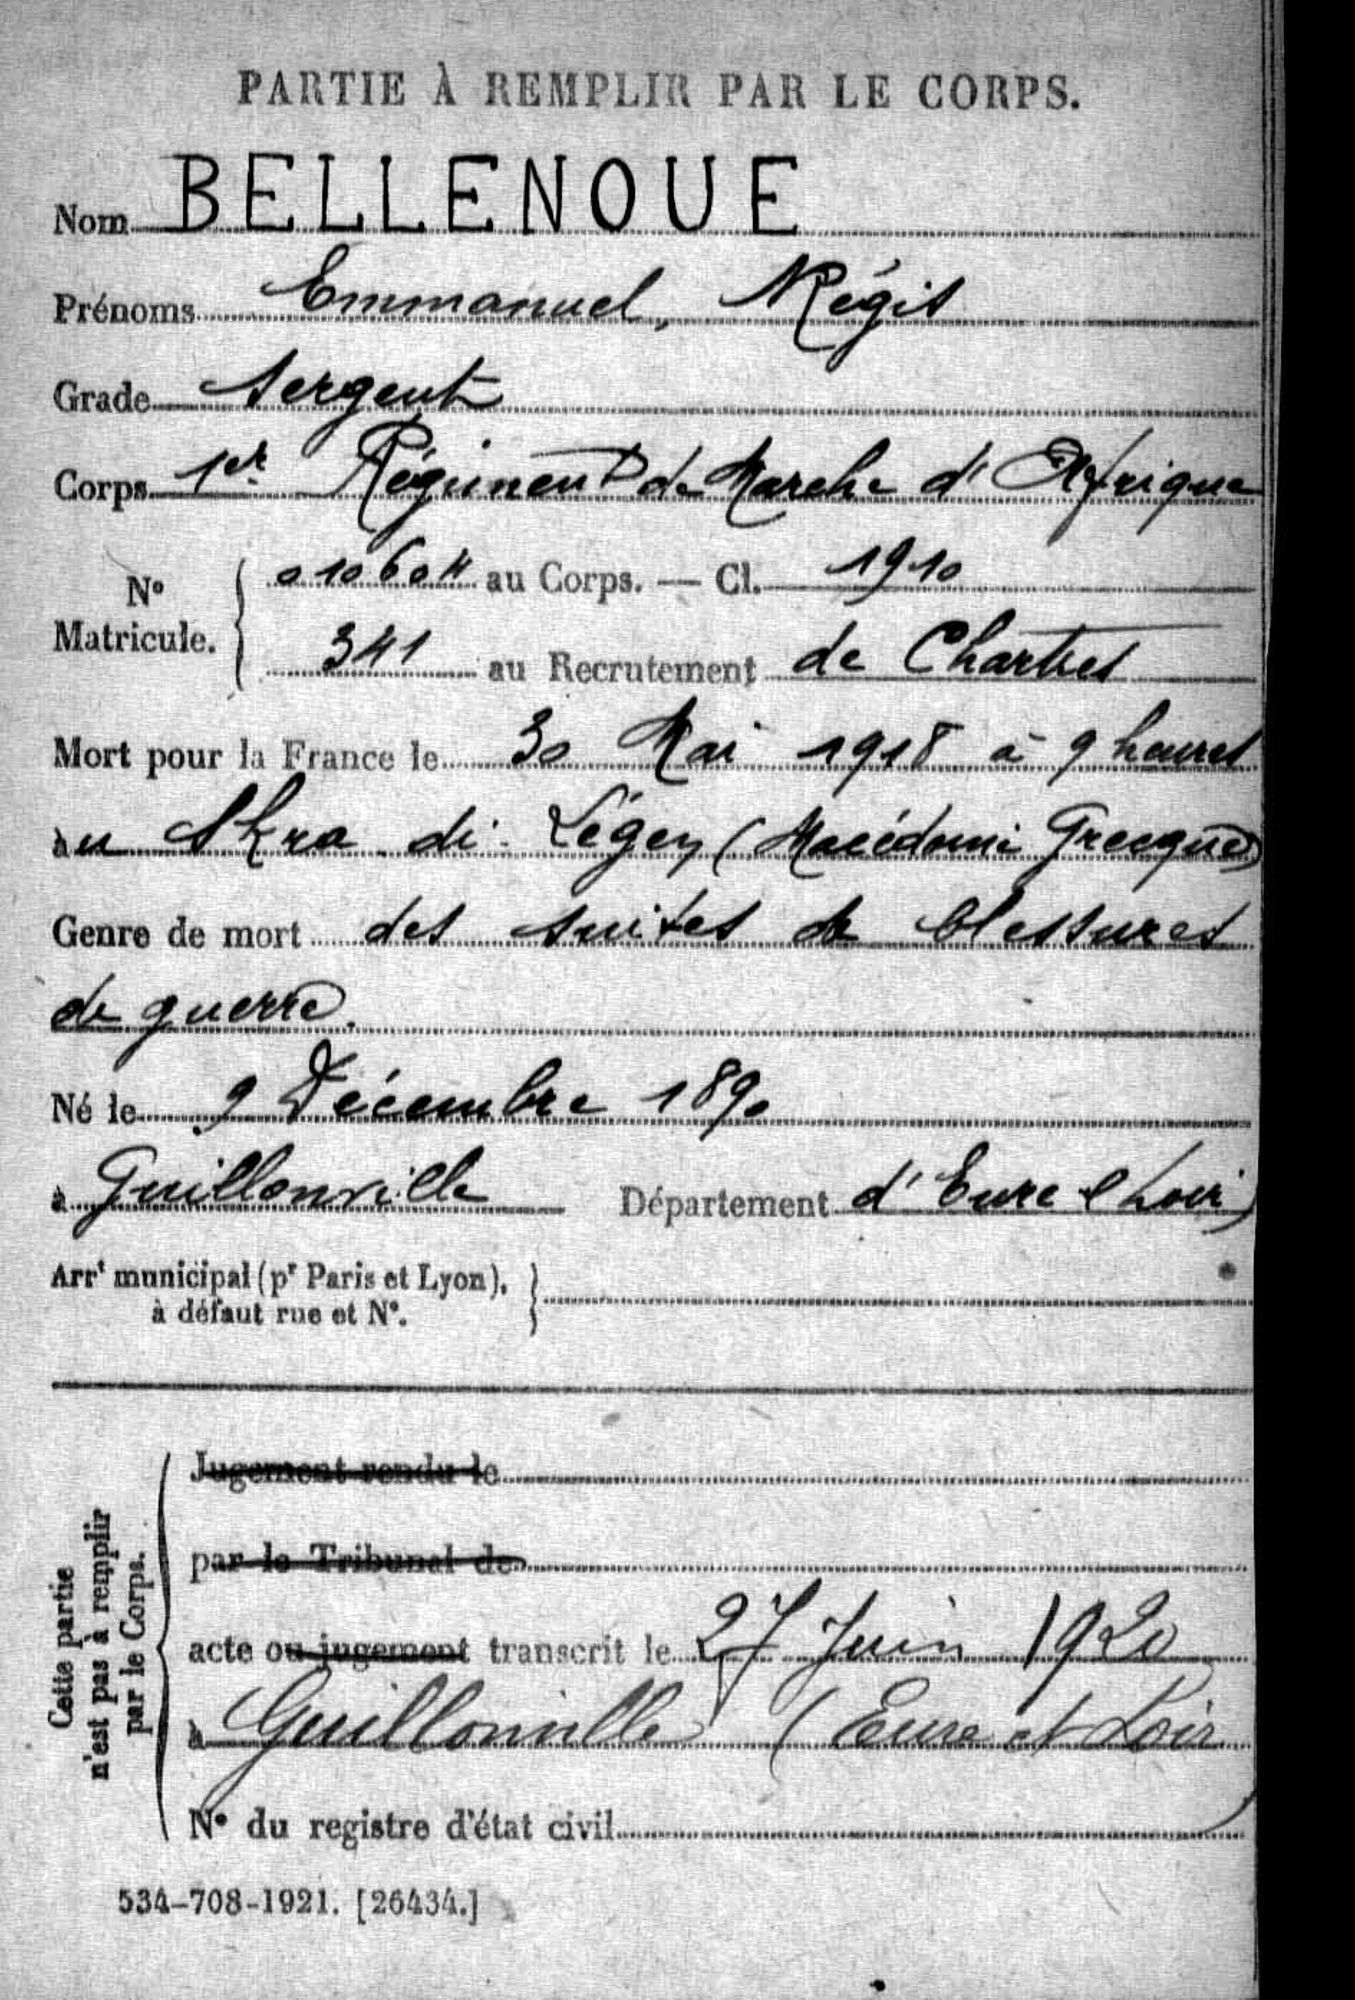 PARTIE À REMPLIR PAR LE CORPS.
Nom BELLENOUE
Prénoms Emmanuel, Régis
Grade Sergent
Corps 1er Régiment de Marche d'Afrique
N° Matricule. 010604 au Corps. — Cl. 1910
341 au Recrutement de Chartres
Mort pour la France le 30 Mai 1918 à 9 heures
au Skra di Légen (Macédoine Grecque)
Genre de mort des suites de blessures
de guerre.
Né le 9 Décembre 1890
à Guillonville Département d'Eure & Loir
Arrt municipal (pr Paris et Lyon),
à défaut rue et N°.
Cette partie
n'est pas à remplir
par le Corps.
Jugement rendu le
par le Tribunal de
acte ou jugement transcrit le 27 Juin 1920
à Guillonville (Eure et Loir)
N° du registre d'état civil
534-708-1921. [26434.]